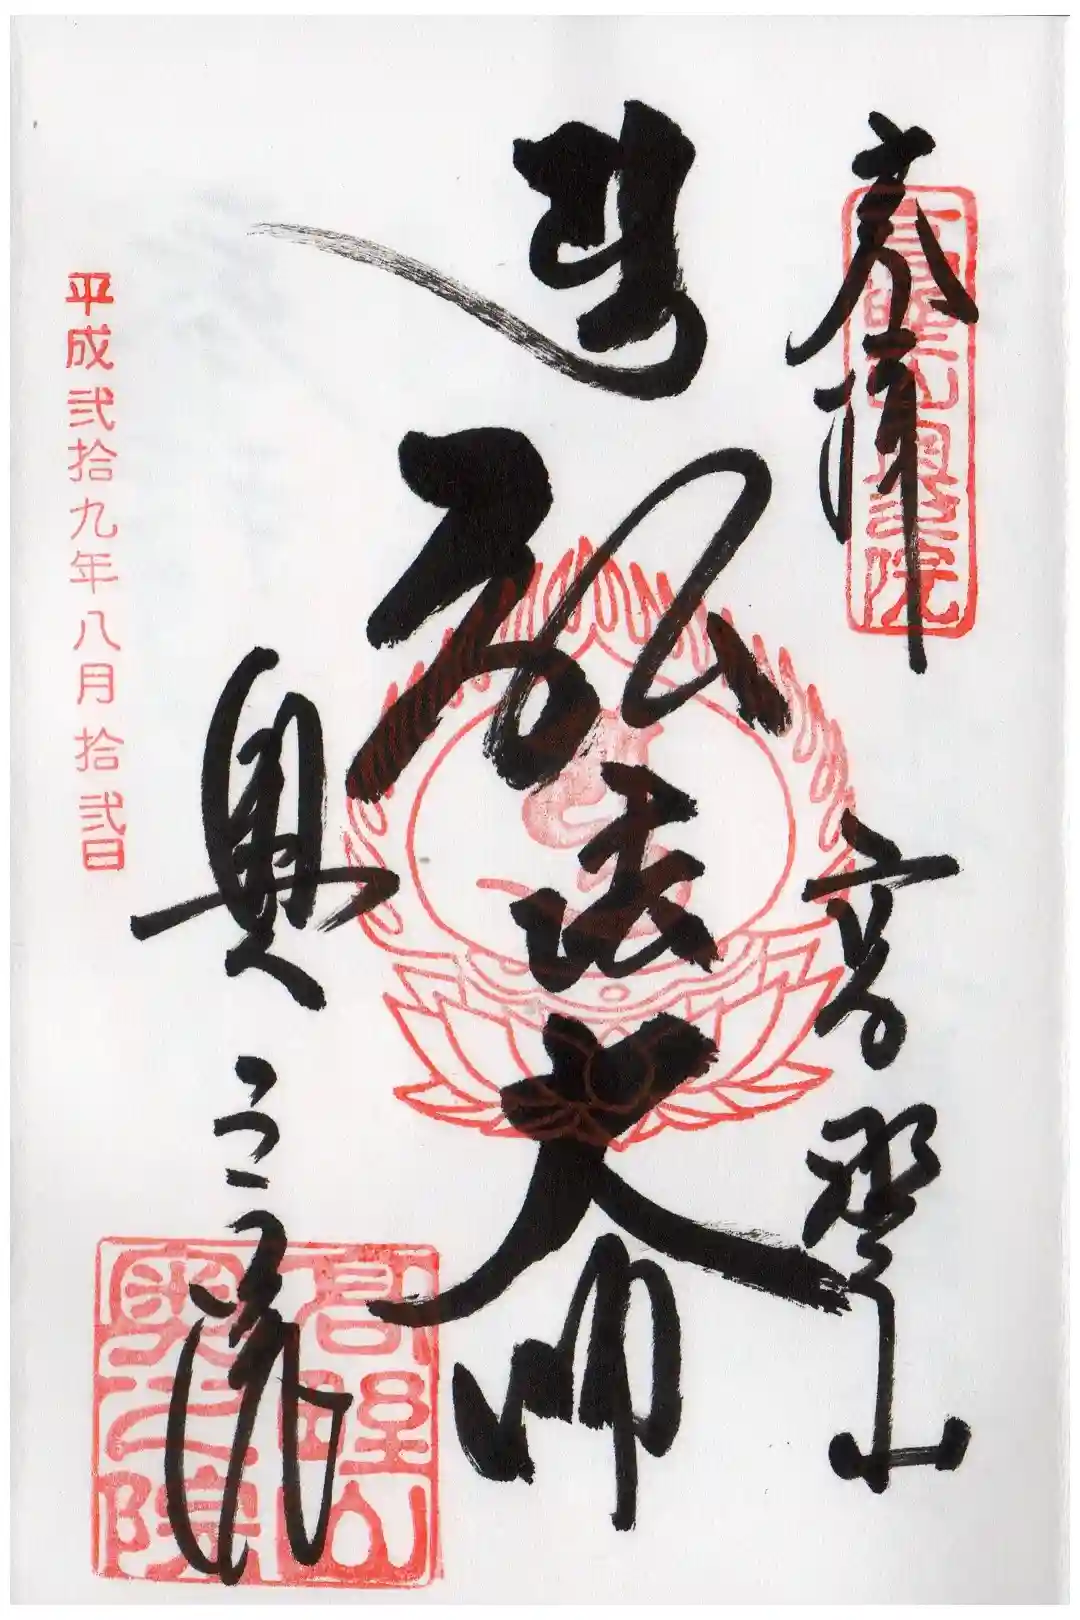 奉拝
高野山奥之院
高野山
弘法大師
奥之院
高野山
奥之院
平成弐拾九年八月拾弐日